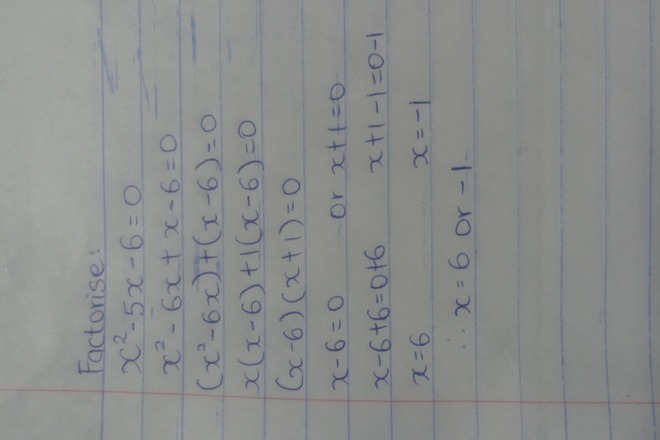 Factorise:
x² - 5x - 6 = 0
x² - 6x + x - 6 = 0
(x² - 6x) + (x - 6) = 0
x(x - 6) + 1(x - 6) = 0
(x - 6)(x + 1) = 0
x - 6 = 0 or x + 1 = 0
x - 6 + 6 = 0 + 6 x + 1 - 1 = 0 - 1
x = 6 x = -1
∴ x = 6 or -1